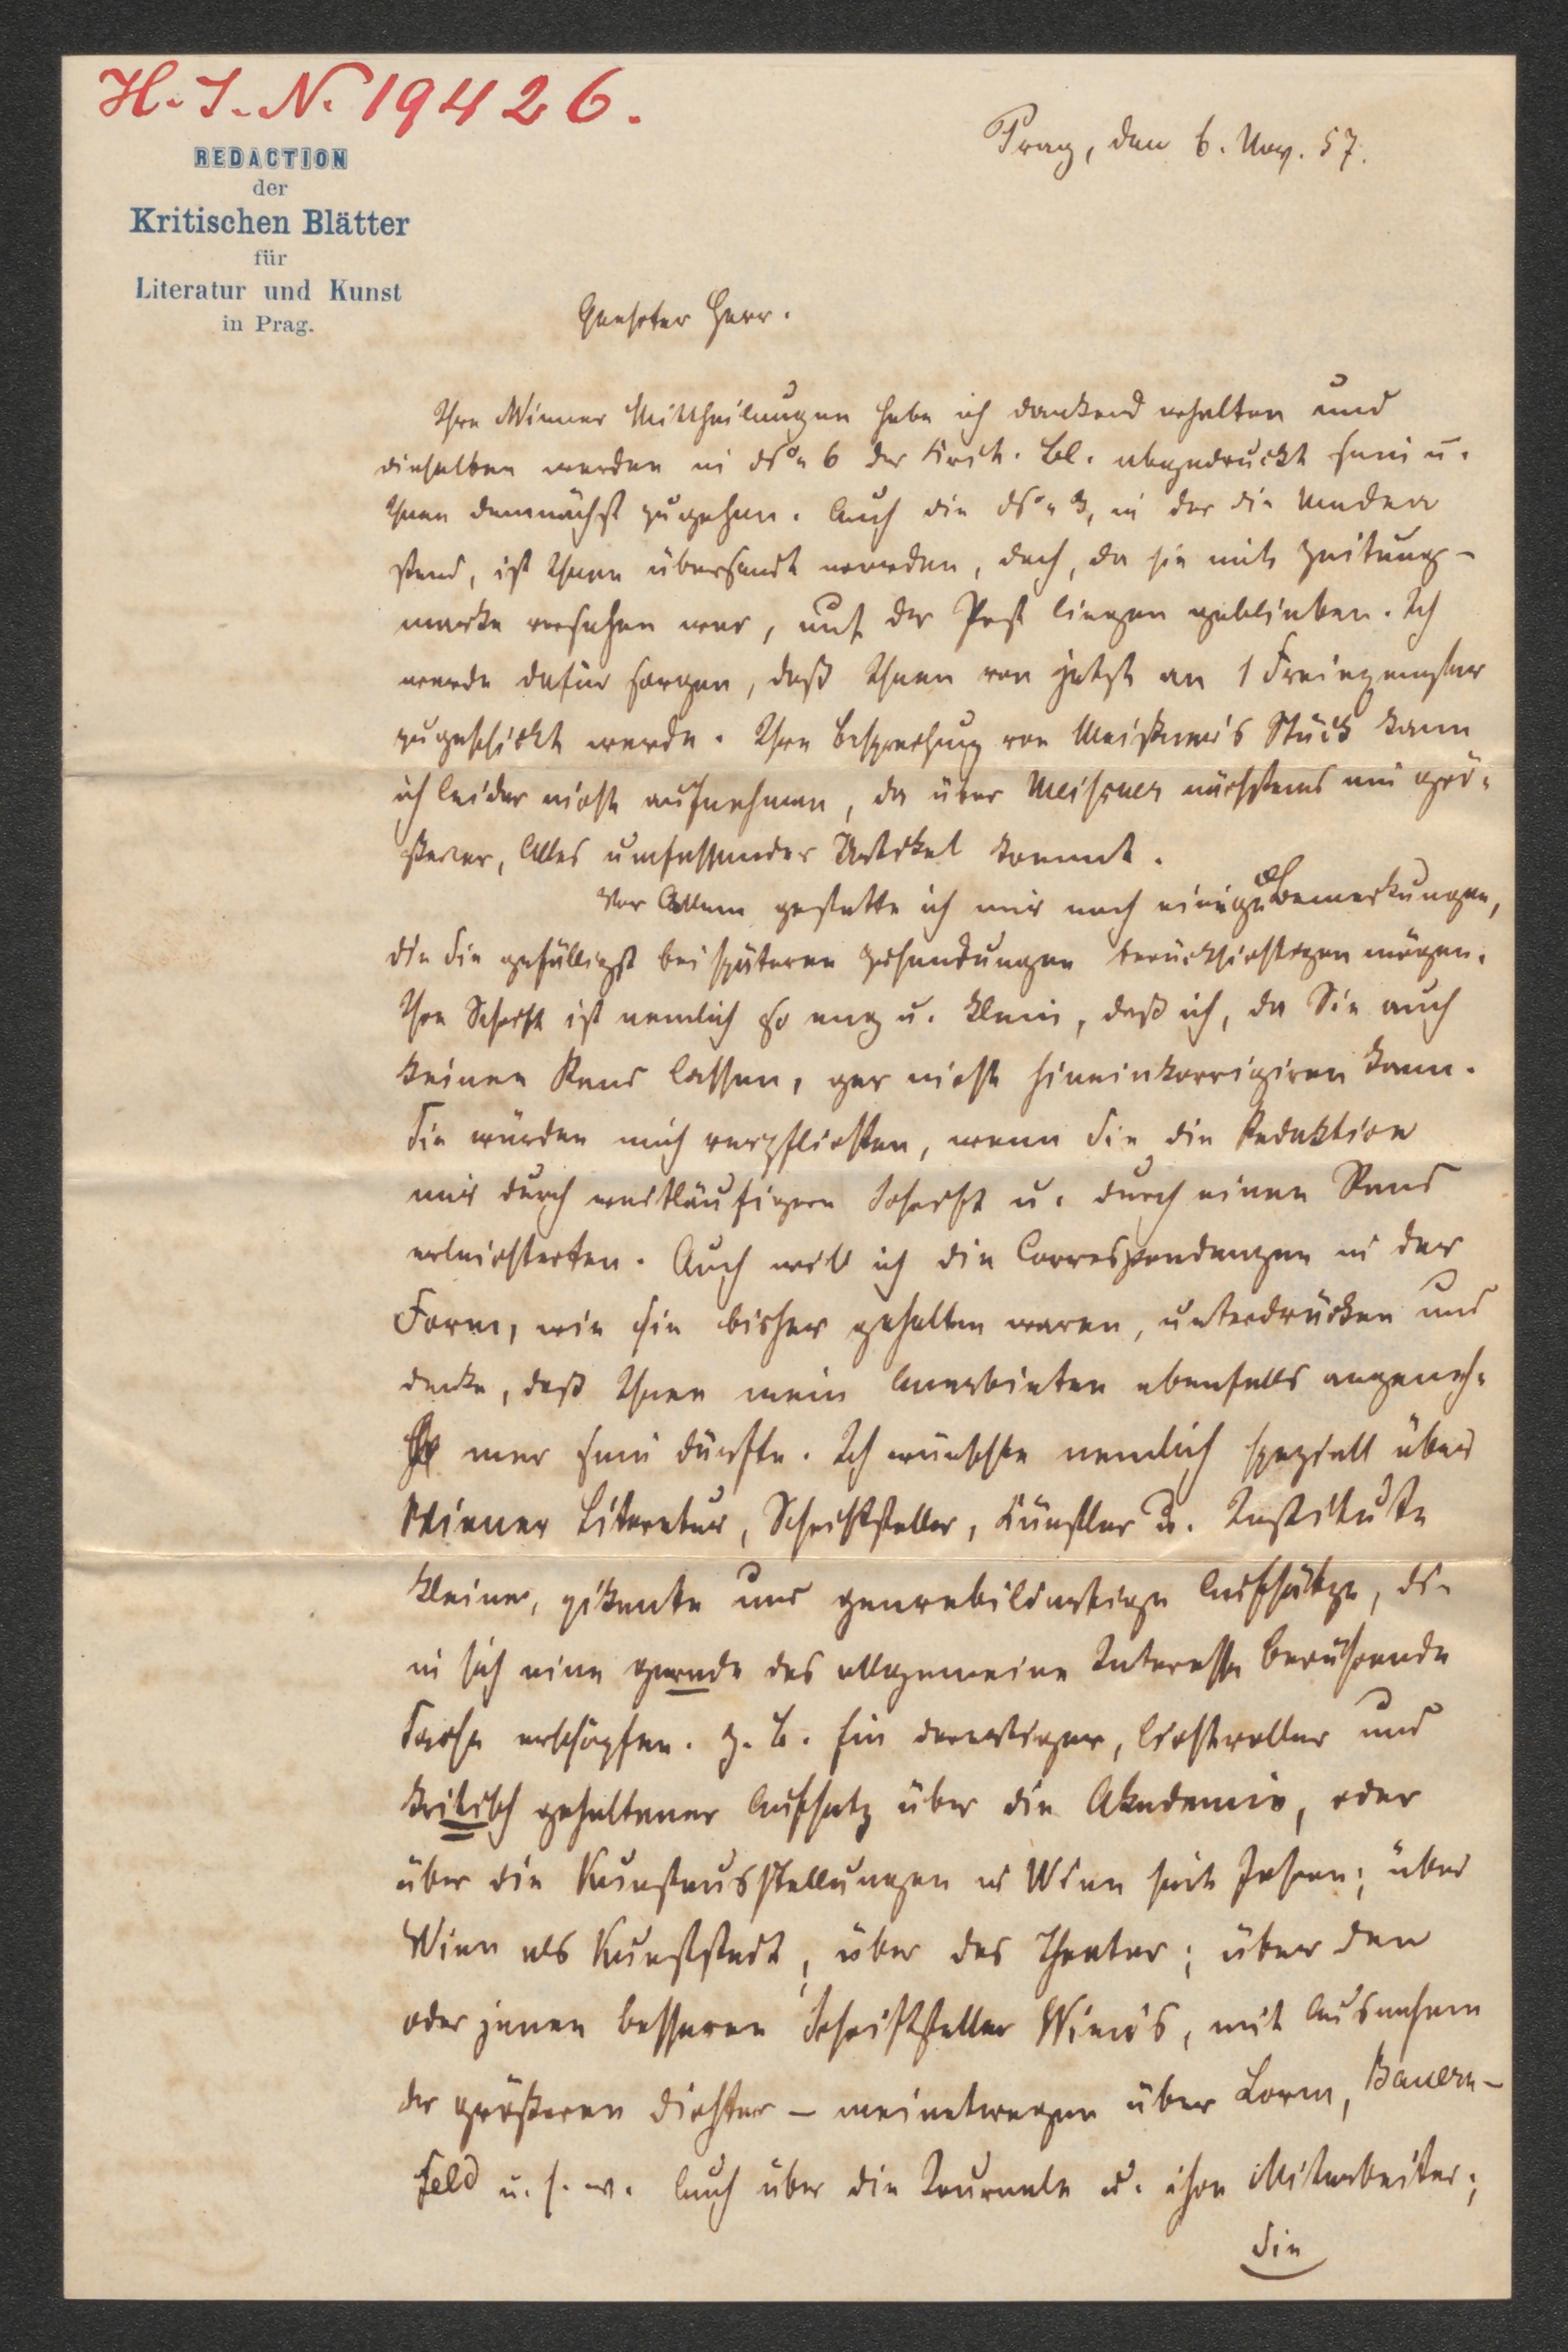 H. I. N. 19426.
REDACTION
der
Kritischen Blätter
für
Literatur und Kunst
in Prag.
Prag, den 6. Nov. 57.
Geehrter Herr.
Ihre Wiener Mittheilungen habe ich dankend erhalten und
dieselben werden in No 6 der Krit. Bl. abgedruckt sein u.
Ihnen demnächst zugehen. Auch die No 3, in der die
stand, ist Ihnen übersandt worden, doch, da sie mit Zeitung-
marke versehen war, auf der Post liegen geblieben. Ich
werde dafür sorgen, daß Ihnen von jetzt an 1 Freiexemplar
zugeschickt werde. Ihre Besprechung von Meißner's Stück kann
ich leider nicht aufnehmen, da über Meißner nächstens ein grö-
ßerer, Alles umfassender Artikel kommt.
Vor Allem gestatte ich mir noch einige Bemerkungen,
die Sie gefälligst bei späteren Zusendungen berücksichtigen mögen.
Ihre Schrift ist nemlich so eng u. klein, daß ich, da Sie auch
keinen Rand lassen, gar nicht hineinkorrigiren kann.
Sie würden mich verpflichten, wenn Sie die Redaktion
mir durch weitläufigere Schrift u. durch einen Rand
erleichterten. Auch will ich die Correspondenzen in der
Form, wie sie bisher gehalten waren, unterdrücken und
denke, daß Ihnen mein Anerbieten ebenfalls angeneh-
mer sein dürfte. Ich wünschte nemlich speziell über
Wiener Literatur, Schriftsteller, Künstler u. Institute
kleine, pikante und genrebildartige Aufsätze, die
in sich eine gerade das allgemeine Interesse berührende
Sache erschöpfen. z. B. Ein derartiger, lichtvoller und
kritisch gehaltener Aufsatz über die Akademie, oder
über die Kunstausstellungen in Wien seit Jahren; über
Wien als Kunststadt, über das Theater; über den
oder jenen besseren Schriftsteller Wien's, mit Ausnahme
der größeren Dichter – meinetwegen über Lorm, Bauern-
feld u. s. w. Auch über die Journale u. ihre Mitarbeiter;
die